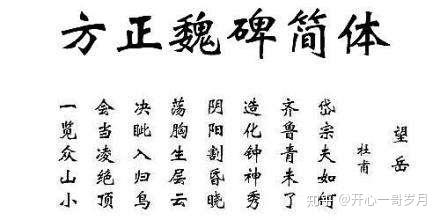 方正魏碑简体
望岳
杜甫
岱宗夫如何
齐鲁青未了
造化钟神秀
阴阳割昏晓
荡胸生层云
决眦入归鸟
会当凌绝顶
一览众山小
知乎 @开心一哥岁月